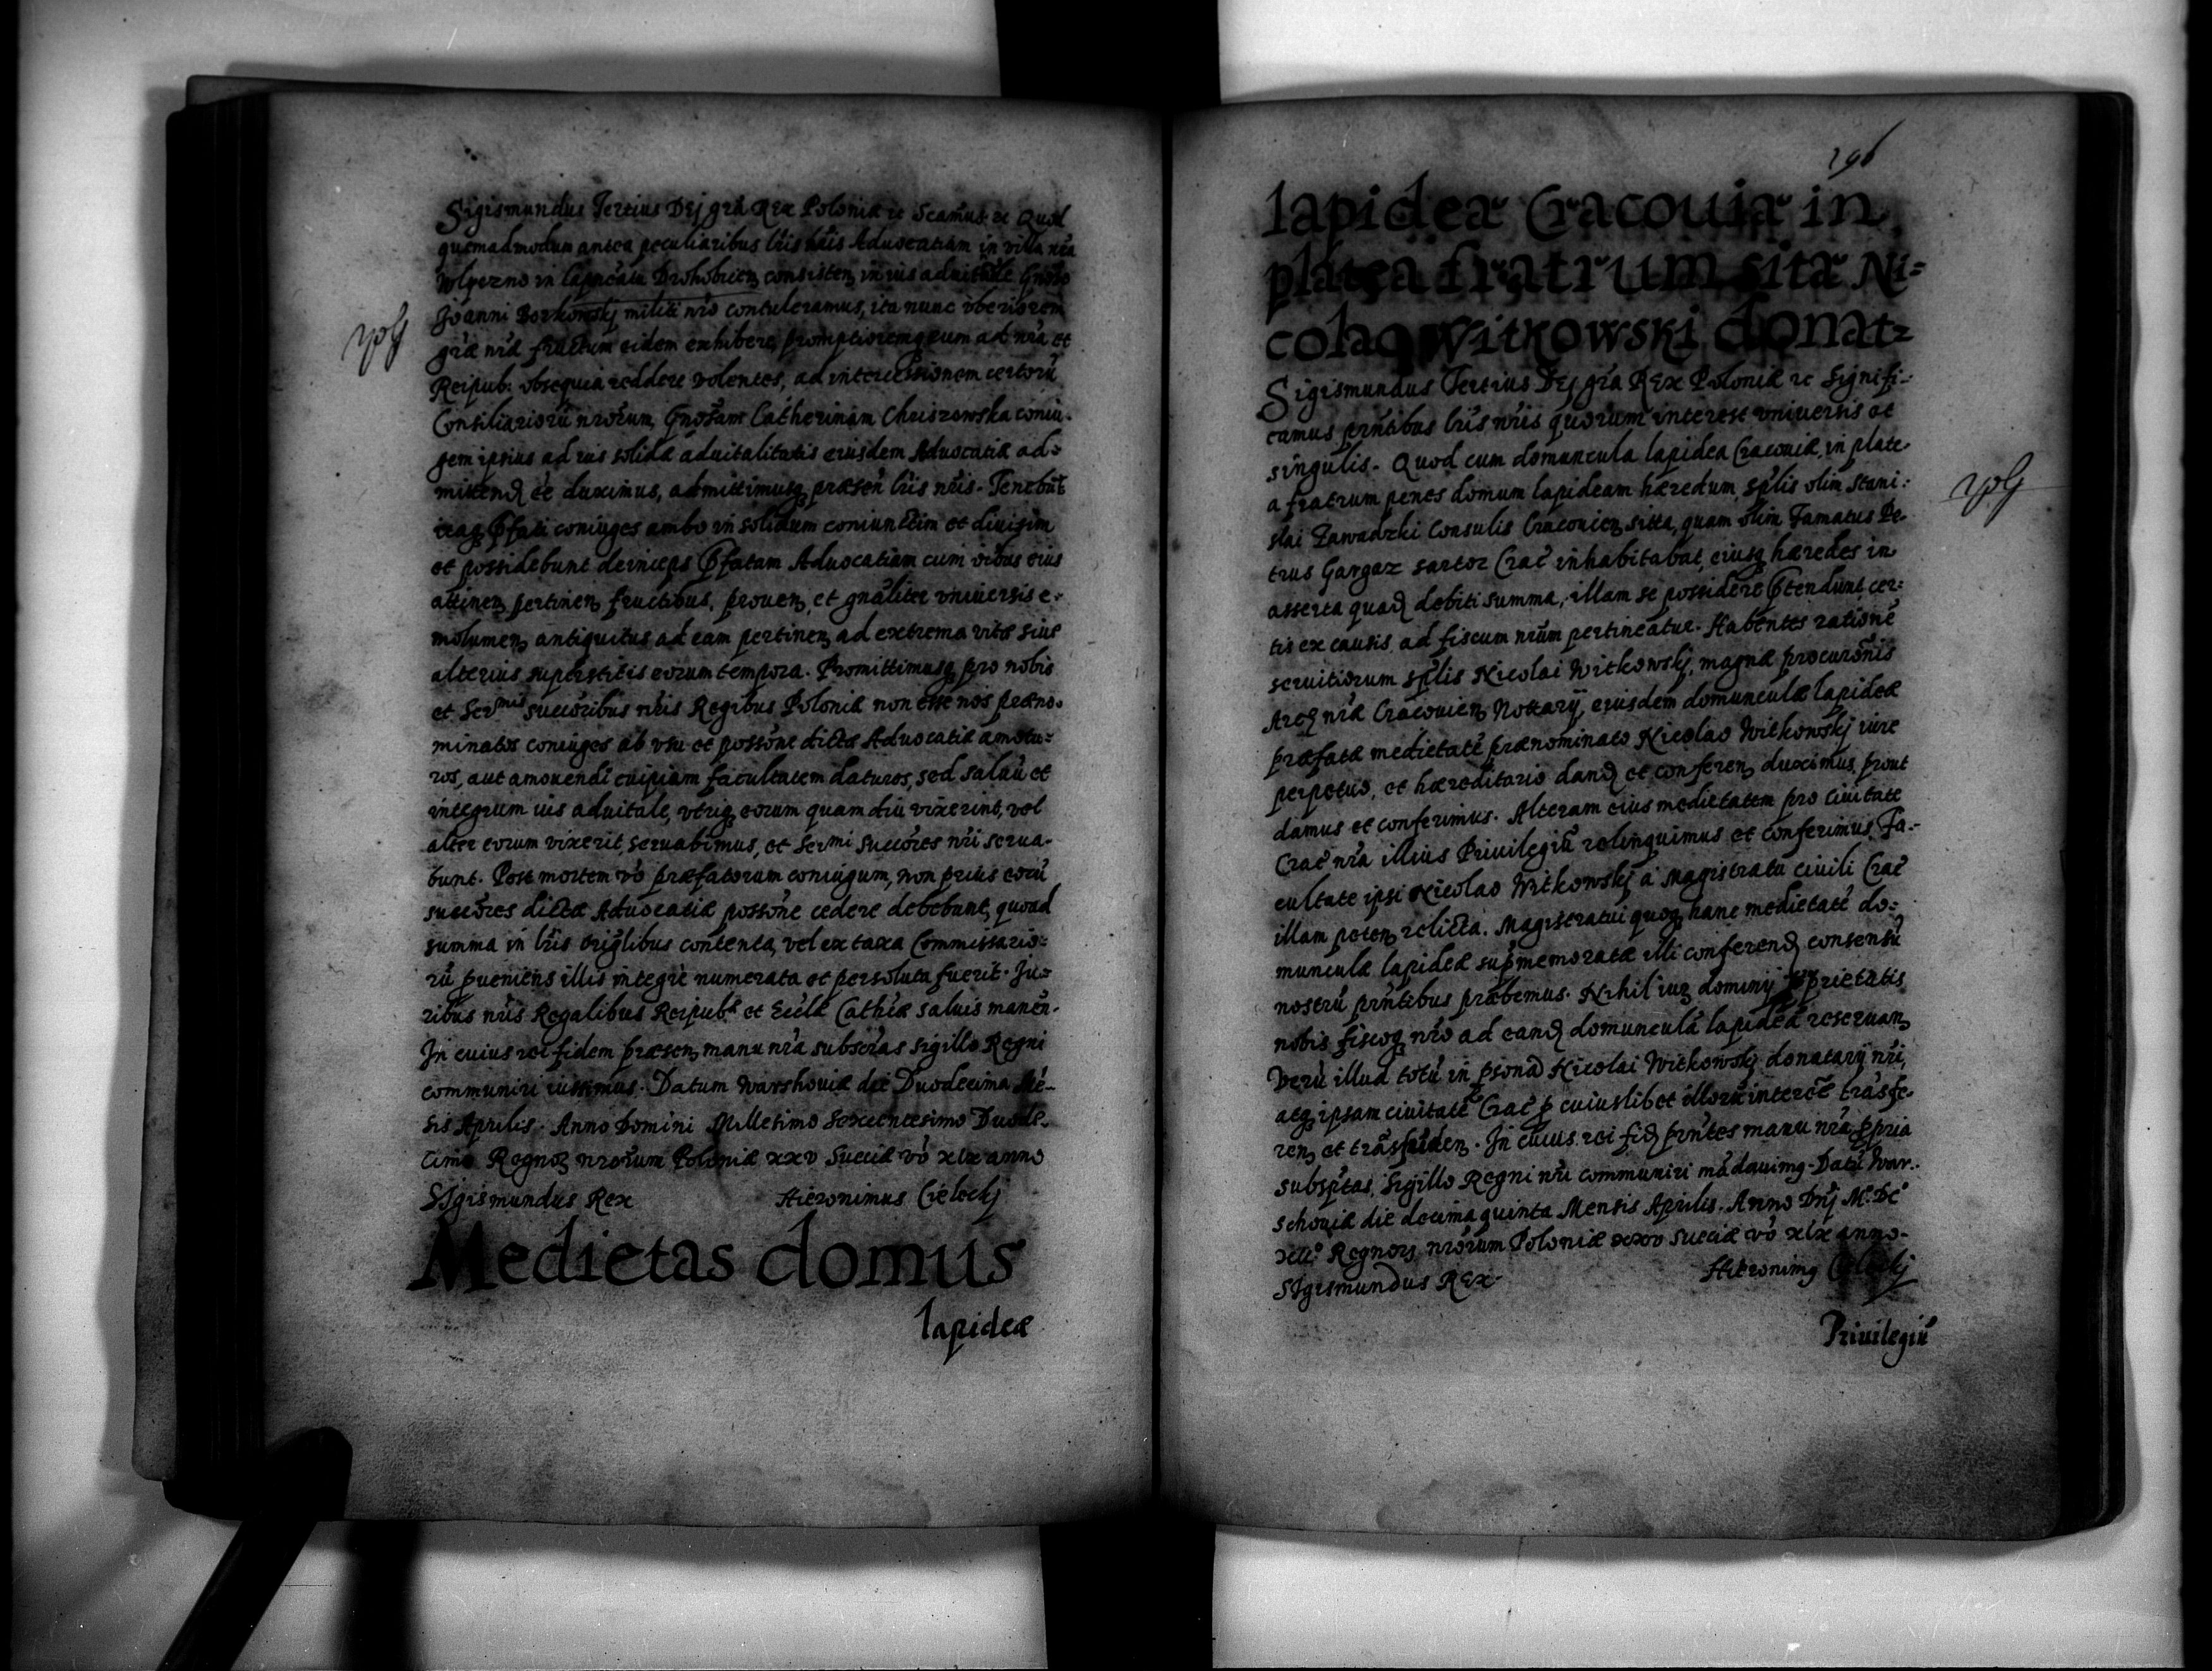 Sigismundus Tertius Dej gr̃a Rex Poloniæ ꝛc Scamus ꝛc Quod
quemadmodum antea peculiaribus lr̃is nr̃is Advocatiam in villa nr̃a
in Drohobicen consisten in ius advitale Gnoso
Joanni Borkowskj militi nr̃o contuleramus, ita nunc vberiorem
gr̃æ nr̃æ fructum eidem exhibere, promptioremq eum ad nr̃a et
Reipub: obsequia reddere volentes, ad intercessionem certorũ
Consiliariorũ nr̃orum, Gnosam Catherinam Chriszowska coniu-
gem ipsius ad ius solidæ aduitalitatis eiusdem Aduocatiæ ad-
mittend ee duximus, admittimusq præsen lr̃is nr̃is. Tenebũt
itaq p̃fati coniuges ambo in solidum coniunctim et diuisim
et possidebunt deinceps p̃fatam Aduocatiam cum oĩbus eius
attinen pertinen fructibus, prouen, et gnãliter vniuersis e-
molumen antiquitus ad eam pertinen ad extrema vitæ siue
alterius superstitis eorum tempora. Promittimusq pro nobis
et Serᵐⁱˢ succoribus nr̃is Regibus Poloniæ non esse nos præno-
minatos coniuges ab vsu et possõne dictæ Aduocatiæ amotu-
ros, aut amouendi cuipiam facultatem daturos, sed saluũ et
integrum ius aduitale, vtriq eorum quam diu vixerint, vel
alter eorum vixerit, seruabimus, et Serᵐⁱ Succores nr̃i serua-
bunt. Post mortem vo præfatorum coniugum, non prius eorũ
succores dictæ Aduocatiæ possõne cedere debebunt, quoad
summa in lr̃is origlibus contenta, vel ex taxa Commissario-
rũ pueniens illis integre numerata et persoluta fuerit. Ju-
ribus nr̃is Regalibus Reipubᶜᵉ et Eccle Cathcæ saluis manen-
In cuius rei fidem præsen manu nr̃a subscras sigillo Regni
communiri iussimus. Datum Warshouiæ die Duodecima Mẽ-
sis Aprilis. Anno Domini Millesimo Sexcentesimo Duode-
cimo Regnoꝝ nrorum Poloniæ xxv Sueciæ vo xix anno
Sigismundus Rex Hieronimus Cieleckj
Medietas domus
lapideæ
196
lapideæ Cracouiæ in
platea fratrum sitæ Ni-
colao Witkowski donat-
Sigismundus Tertius Dej gr̃a Rex Poloniæ ꝛc Signifi-
camus prñtibus lr̃is nr̃is quorum interest vniuersis et
singulis. Quod cum domuncula lapidea Cracouiæ, in plate-
a fratrum penes domum lapideam hæredum splis olim Stani-
slai Zawadzki Consulis Cracouien sitta, quam olim Famatus Pe-
trus Gargaz sartor Crac̃ inhabitabat, eiusq hæredes in
asserta quad debiti summa, illam se possidere p̃tendunt, cer-
tis ex causis ad fiscum nr̃um pertineatur. Habentes rationẽ
seruitiorum splis Nicolai Witkowskj, magnæ procurõnis
Arc nr̃æ Cracouien Nottarij, eiusdem domunculæ lapideæ
præfatæ medietatẽ prænominato Nicolao Witkowskj iure
perpetuo, et hæreditario dand et conferen duximus, prout
damus et conferimus. Alteram eius medietatem pro ciuitate
Crac̃ nr̃a illius Priuilegiũ relinquimus et conferimus, Fa-
cultate ipsi Nicolao Witkowskj a Magistratu ciuili Crac̃
illam peten relicta. Magistratui quoq hanc medietatẽ do-
munculæ lapideæ supmemoratæ illi conferend consensũ
nostrũ prñtibus præbemus. Nihil iuꝝ dominij pprietatis
nobis fiscoq nr̃o ad eand domunculã lapideã reseruan
Verũ illud totũ in psona Nicolai Witkowskj donatarij nr̃i,
atq ipsam ciuitatẽ Crac̃ p cuiuslibet illorũ interee trãsfe-
ren et trãs. In cuius rei fid prñtes manu nr̃a ppria
subsptas, Sigillo Regni nr̃i communiri mãdauimq. Datũ War-
schouiæ die decima quinta Mensis Aprilis. Anno Dnj M. DC
xii. Regnoꝝ nrorum Poloniæ xxv Sueciæ vo xix anno.
Sigismundus Rex. Hieronimq Cieleckj
Priuilegiũ